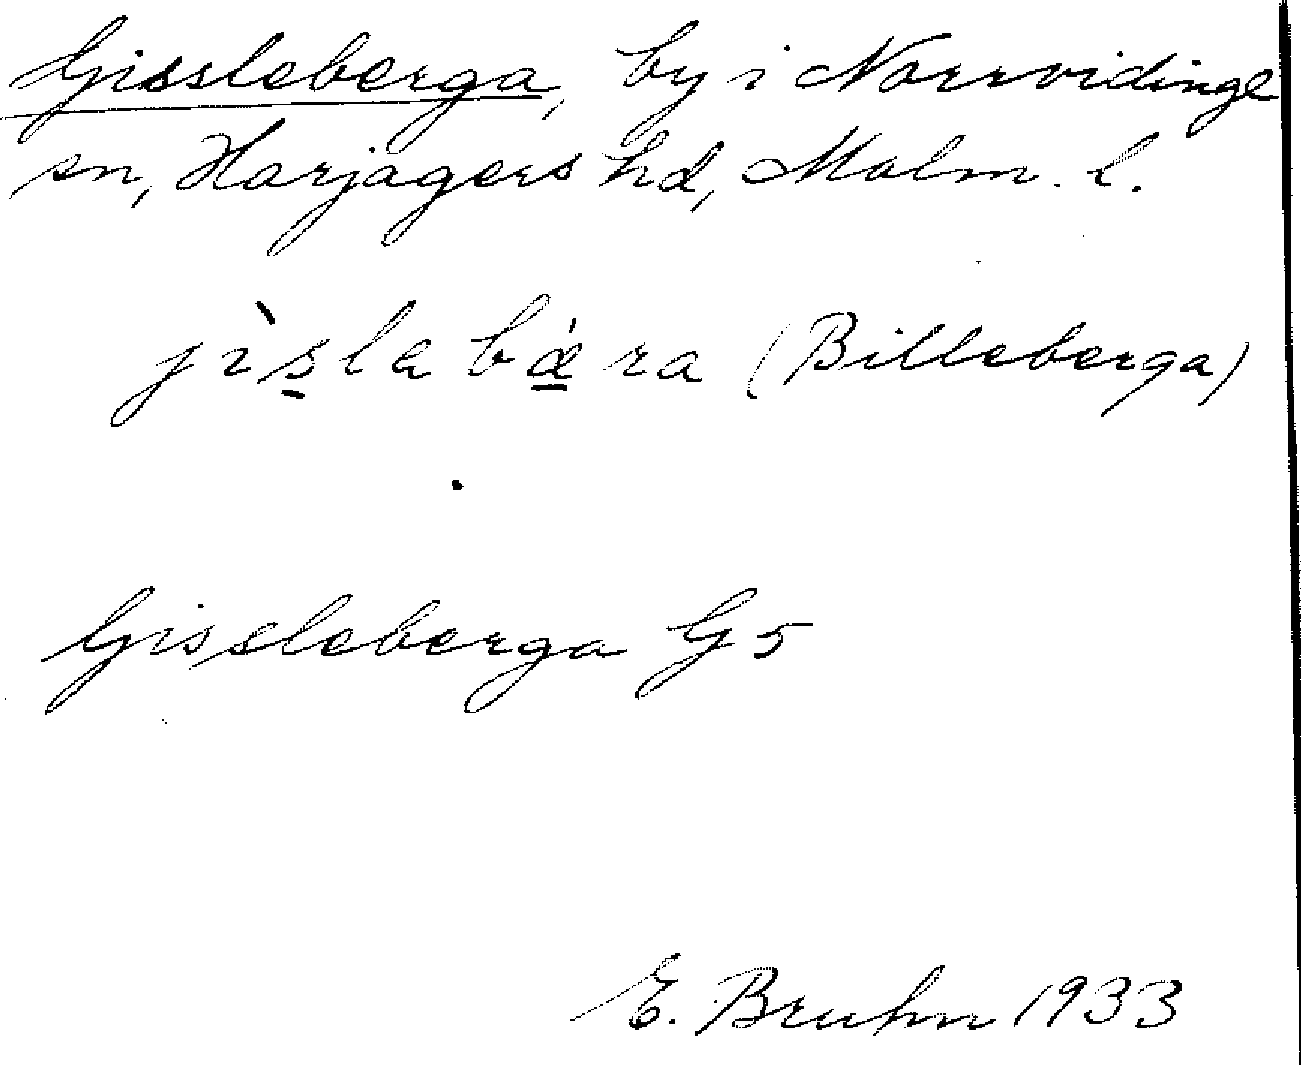 Gissleberga, by i Norrvidinge
sn, Harjagers hd, Malm. l.
jìs̱lebǽ̱ra (Billeberga)
Gissleberga G5
E. Bruhn 1933